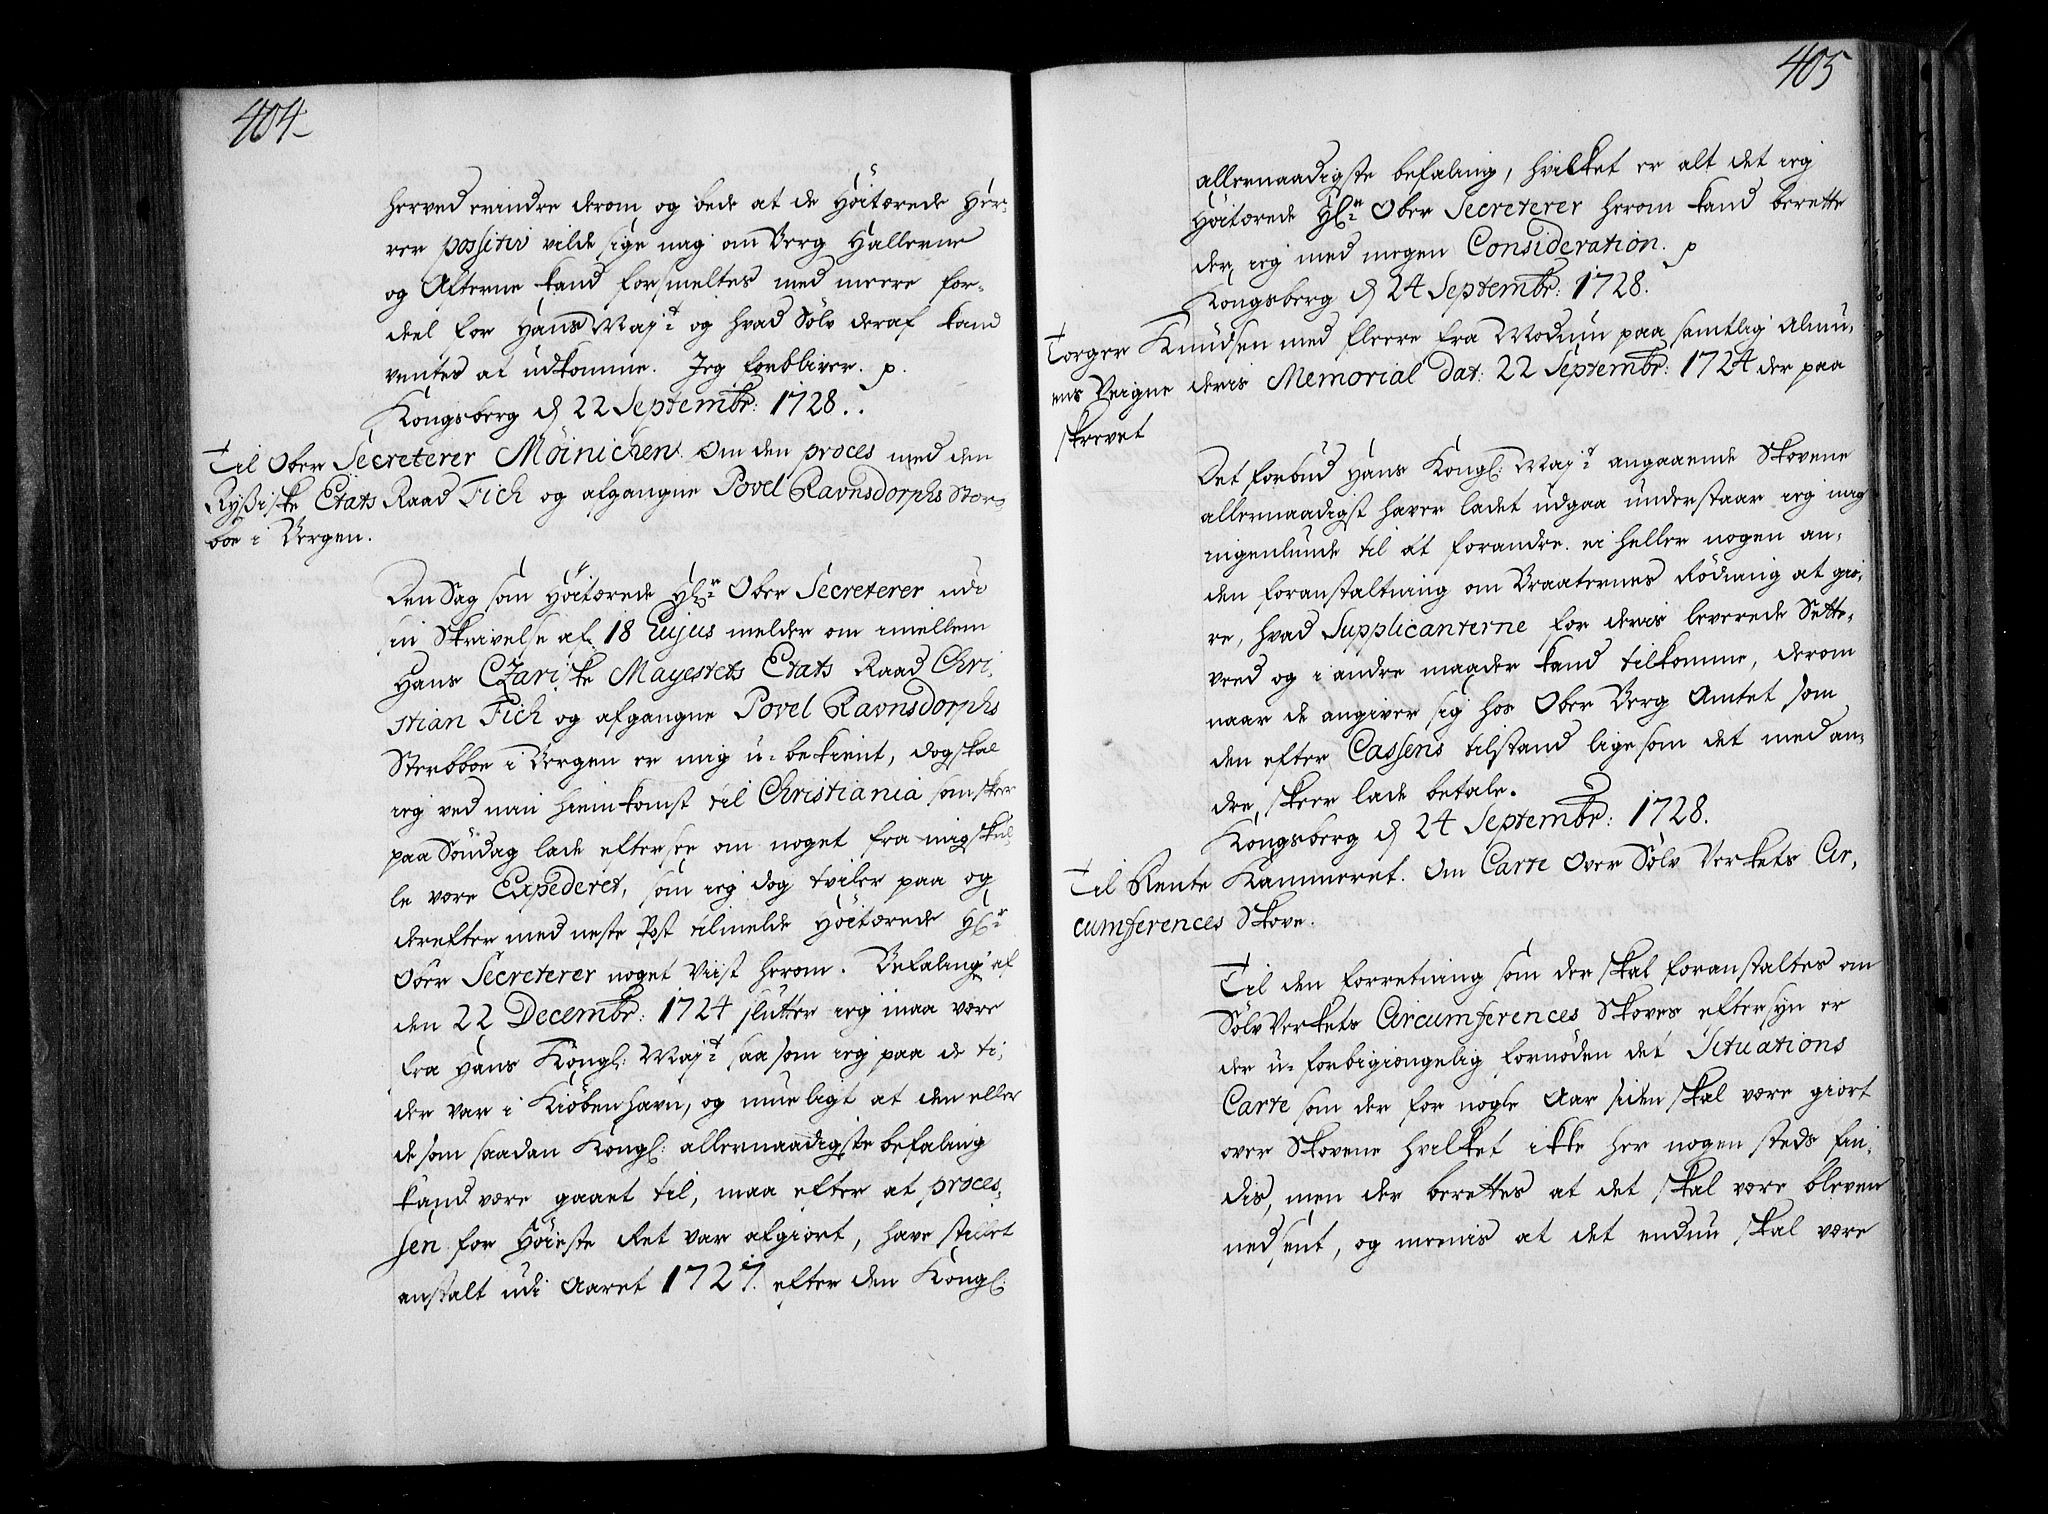 404
herved erindre derom og bede at de Höitærede Her-
rer possitiv vilde sige mig om Berg Hallerne
og Afterne kand forsmeltes med meere for-
deel for Hans May:t og hvad Sölv deraf kand
ventes at udkomme. Jeg forbliver. p.
Kongsberg d 22 Septembr: 1728.
Til Ober Secreterer Möinichen. Om den proces med den
Rysiske Etats Raad Fich og afgangne Povel Ravnsdorphs Ster-
boe i Bergen.
Den Sag som Höitærede Hr: Ober Secreterer udi
sin Skrivelse af 18 Hujus melder om imellem
Hans Czariske Mayestets Etats Raad Chri-
stian Fich og afgangne Povel Ravnsdorphs
Sterbboe i Bergen er mig u-bekient, dog skal
ieg ved min hiemkomst til Christiania som skeer
paa Söndag lade eftersee om noget fra mig skul-
le være Expederet, som ieg dog tviler paa og
derefter med neste Post tilmelde Höitærede Hr:
Ober Secreterer noget viist herom. Befaling af
den 22 Decembr: 1724 slutter ieg maa være
fra Hans Kongl: May:t saasom ieg paa de ti-
der var i Kiöbenhavn, og mueligt at den eller
de som saadan Kongl: allernaadigste befaling
kand være gaaet til, maa efter at proces-
sen for Höieste Ret var afgiort, have stillet
anstalt udi Aaret 1727. efter den Kongl:
405
allernaadigste befaling, hvilket er alt det ieg
Höitærede Hr: Ober Secreterer herom kand berette
der ieg med megen Consideration. p
Kongsberg d 24 Septembr: 1728.
Torger Knudsen med fleere fra Modum paa samtlig Almu-
ens Veigne deris Memorial dat: 22 Septembr: 1724 der paa
skrevet
Det forbud Hans Kongl: May:t angaaende Skovene
allernaadigst haver ladet udgaa understaar ieg mig
ingenlunde til at forandre. ei heller nogen an-
den foranstaltning om Braaternes Rödning at giö-
re, hvad Supplicanterne for deris leverede Sette-
veed og i andre maader kand tilkomme, derom
naar de angiver sig hos Ober Berg Amtet som
den efter Cassens tilstand ligesom det med an-
dre skeer lade betale.
Kongsberg d 24 Septembr: 1728.
Til Rente Kammeret. Om Carte over Sölv Verkets Cir-
cumferences Skove.
Til den forretning som der skal foranstaltes om
Sölv Verkets Circumferences Skoves eftersyn er
der u-forbigiængelig fornöden det Situations
Carte som der for nogle Aar siden skal være giort
over Skovene hvilket ikke her nogen steds fin-
dis, men der berettes at det skal være bleven
nedsent, og meenis at det endnu skal være